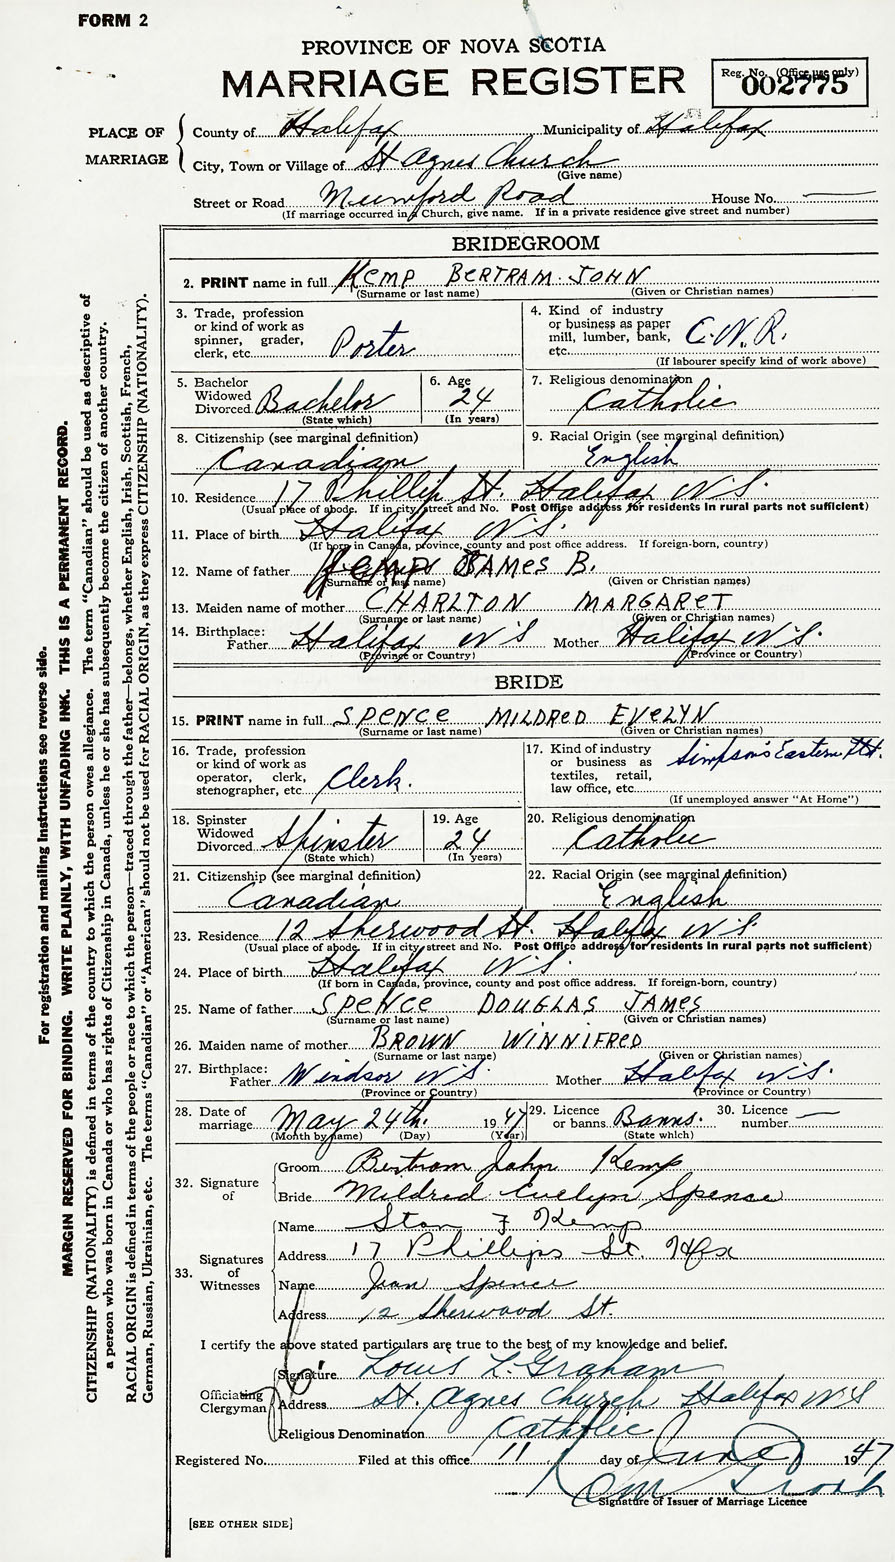 FORM 2
PROVINCE OF NOVA SCOTIA
MARRIAGE REGISTER
Reg. No. (Office use only)
002775
PLACE OF MARRIAGE
County of Halifax Municipality of Halifax
City, Town or Village of St Agnes Church
(Give name)
Street or Road Mumford Road House No. —
(If marriage occurred in a Church, give name. If in a private residence give street and number)
BRIDEGROOM
2. PRINT name in full KEMP BERTRAM JOHN
(Surname or last name) (Given or Christian names)
3. Trade, profession or kind of work as spinner, grader, clerk, etc. Porter
4. Kind of industry or business as paper mill, lumber, bank, etc. C.N.R.
(If labourer specify kind of work above)
5. Bachelor Widowed Divorced Bachelor
(State which)
6. Age 24
(In years)
7. Religious denomination Catholic
8. Citizenship (see marginal definition) Canadian
9. Racial Origin (see marginal definition) English
10. Residence 17 Phillip St. Halifax N.S.
(Usual place of abode. If in city street and No. Post Office address for residents in rural parts not sufficient)
11. Place of birth Halifax N.S.
(If born in Canada, province, county and post office address. If foreign-born, country)
12. Name of father KEMP JAMES B.
(Surname or last name) (Given or Christian names)
13. Maiden name of mother CHARLTON MARGARET
(Surname or last name) (Given or Christian names)
14. Birthplace: Father Halifax N S Mother Halifax N.S.
(Province or Country) (Province or Country)
BRIDE
15. PRINT name in full SPENCE MILDRED EVELYN
(Surname or last name) (Given or Christian names)
16. Trade, profession or kind of work as operator, clerk, stenographer, etc. Clerk.
17. Kind of industry or business as textiles, retail, law office, etc. Simpson's Eastern Ltd.
(If unemployed answer "At Home")
18. Spinster Widowed Divorced Spinster
(State which)
19. Age 24
(In years)
20. Religious denomination Catholic
21. Citizenship (see marginal definition) Canadian
22. Racial Origin (see marginal definition) English
23. Residence 12 Sherwood St. Halifax N.S.
(Usual place of abode. If in city street and No. Post Office address for residents in rural parts not sufficient)
24. Place of birth Halifax N.S.
(If born in Canada, province, county and post office address. If foreign-born, country)
25. Name of father SPENCE DOUGLAS JAMES
(Surname or last name) (Given or Christian names)
26. Maiden name of mother BROWN WINNIFRED
(Surname or last name) (Given or Christian names)
27. Birthplace: Father Windsor N.S. Mother Halifax N.S.
(Province or Country) (Province or Country)
28. Date of marriage May 24th. 1947
(Month by name) (Day) (Year)
29. Licence or banns Banns.
(State which)
30. Licence number —
32. Signature of
Groom Bertram John Kemp
Bride Mildred Evelyn Spence
33. Signatures of Witnesses
Name Stan F Kemp
Address 17 Phillips St. Hfx
Name Jean Spence
Address 12 Sherwood St.
I certify the above stated particulars are true to the best of my knowledge and belief.
Officiating Clergyman
Signature Louis L. Graham
Address St. Agnes Church Halifax N S
Religious Denomination Catholic
Registered No. Filed at this office 11 day of June 1947
Signature of Issuer of Marriage Licence
[SEE OTHER SIDE]
For registration and mailing instructions see reverse side.
MARGIN RESERVED FOR BINDING. WRITE PLAINLY, WITH UNFADING INK. THIS IS A PERMANENT RECORD.
CITIZENSHIP (NATIONALITY) is defined in terms of the country to which the person owes allegiance. The term "Canadian" should be used as descriptive of
a person who was born in Canada or who has rights of Citizenship in Canada, unless he or she has subsequently become the citizen of another country.
RACIAL ORIGIN is defined in terms of the people or race to which the person—traced through the father—belongs, whether English, Irish, Scottish, French,
German, Russian, Ukrainian, etc. The terms "Canadian" or "American" should not be used for RACIAL ORIGIN, as they express CITIZENSHIP (NATIONALITY).